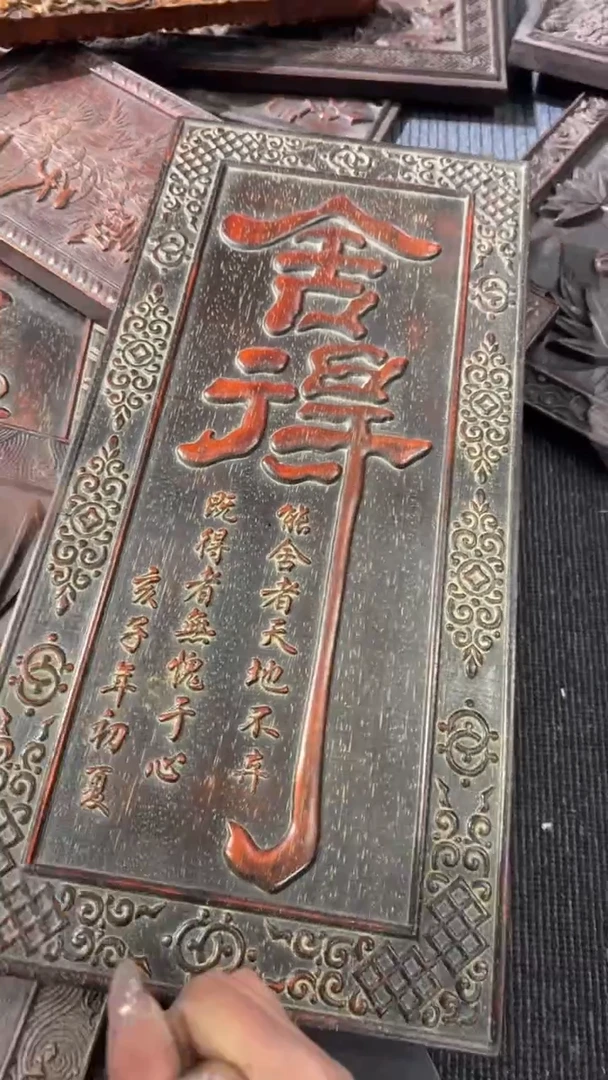 舍得
能舍者天地不
既得者無愧于心
亥子年初夏